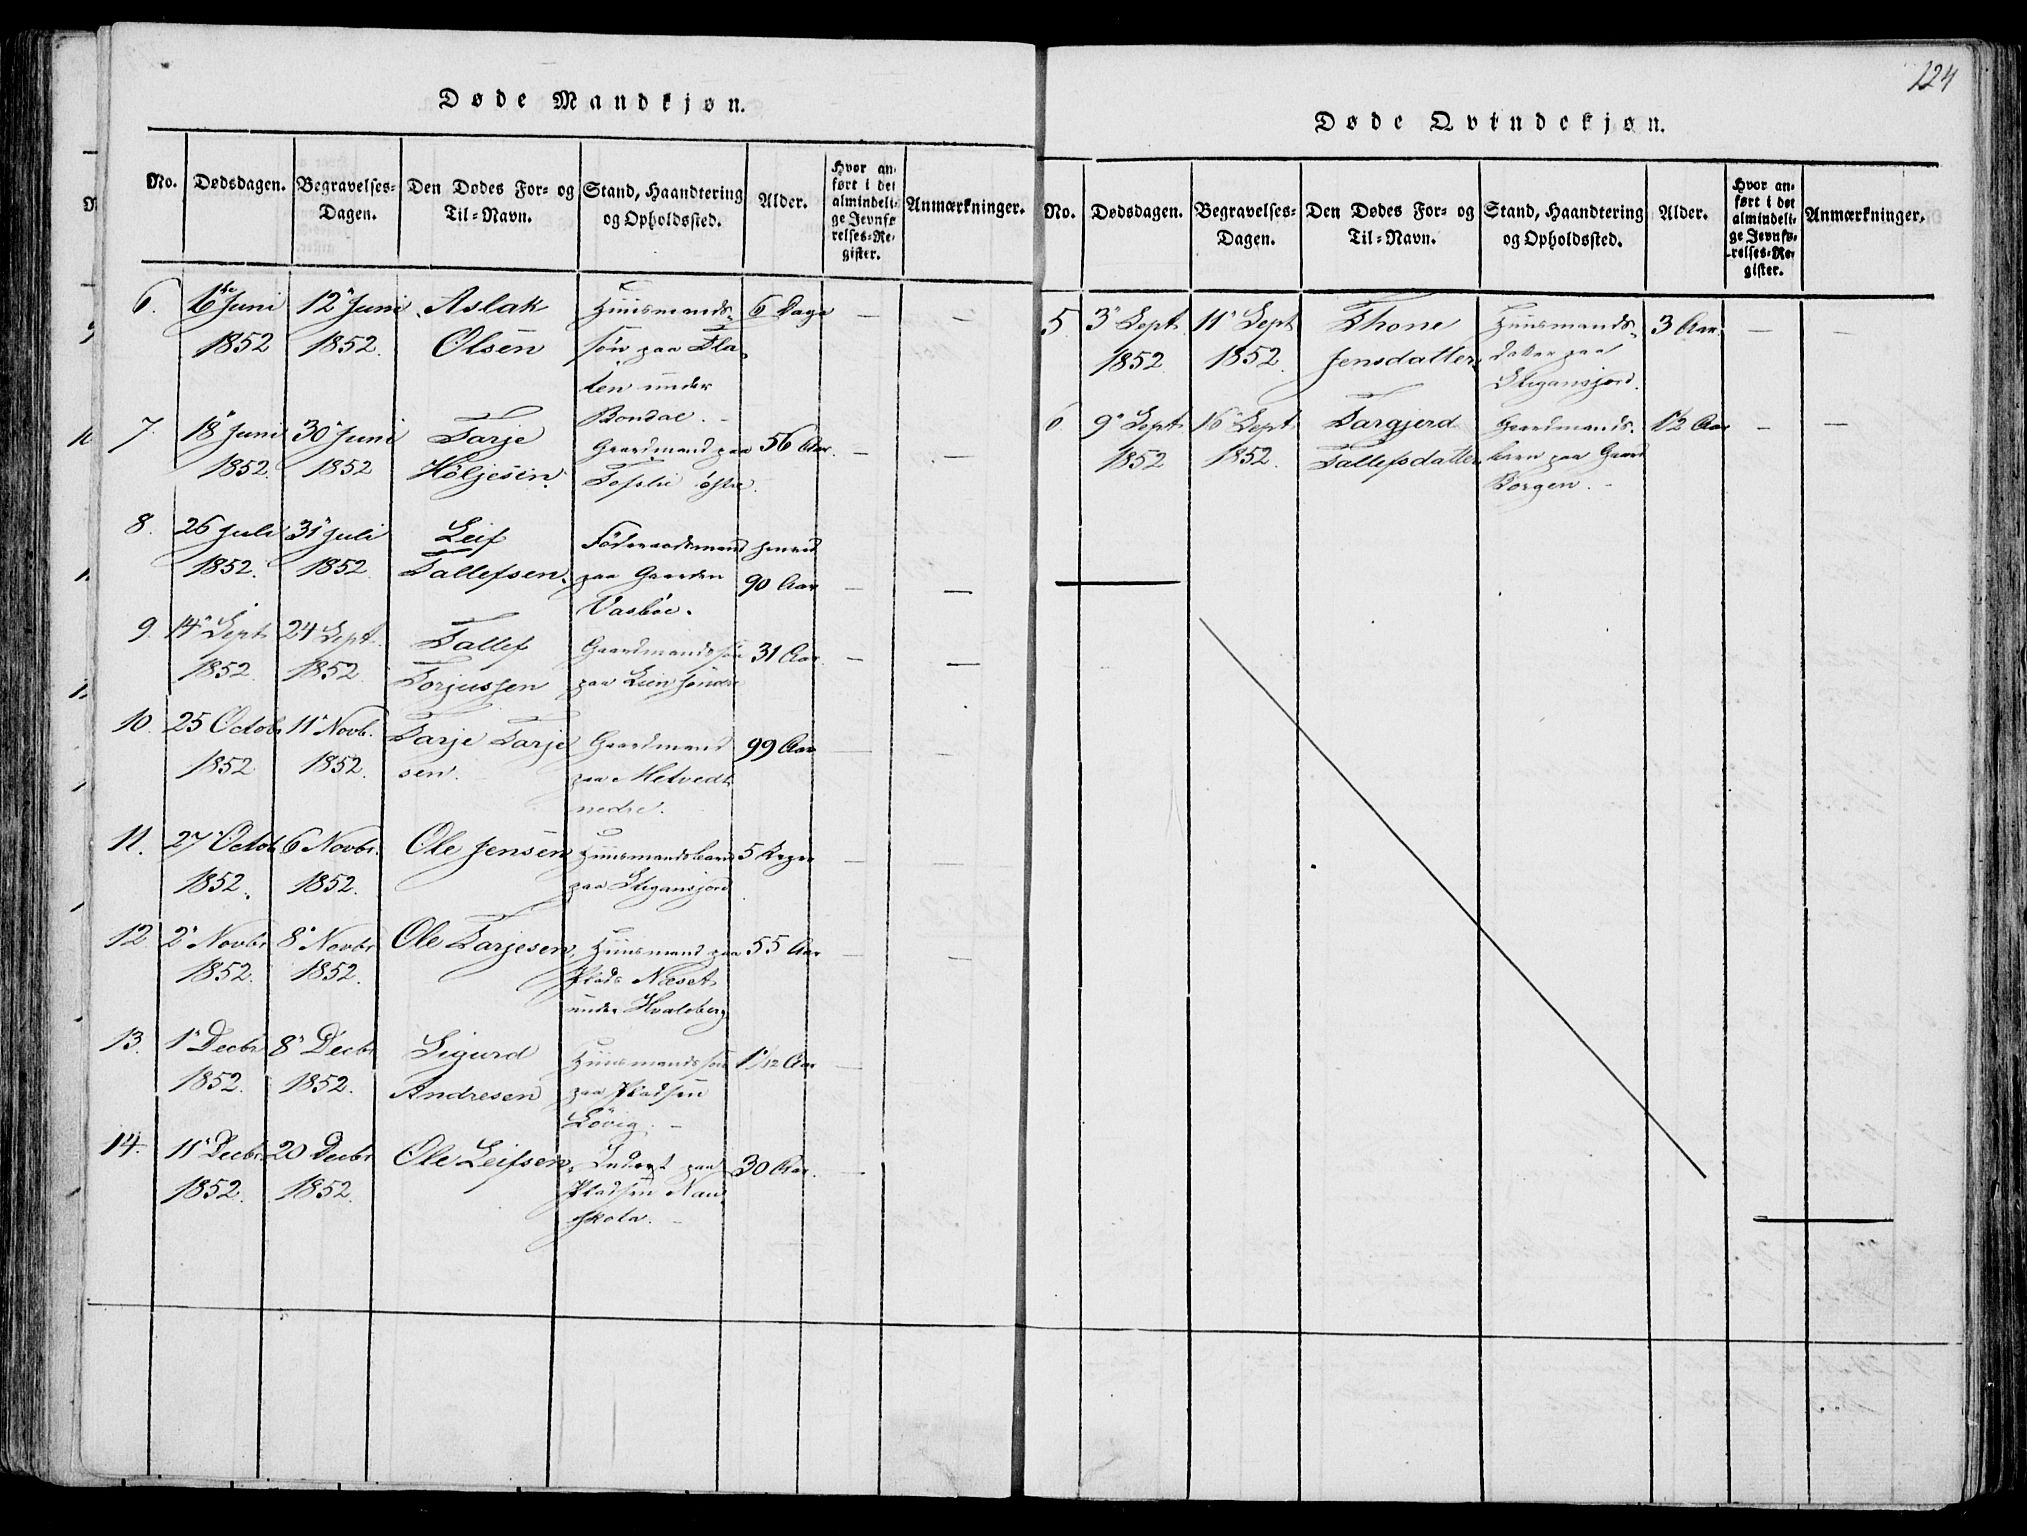 Døde Mandkjøn.
No. Dødsdagen. Begravelses-Dagen. Den Dødes For- og Til-Navn. Stand, Haandtering og Opholdssted. Alder. Hvor anført i det almindelige Jevnførelses-Register. Anmærkninger.
6. 6te Juni 12" Juni Aslak Huusmands- 6 Dage — —
1852 1852. Olsen søn paa Fla-
ten under
Bondal. —
7. 18" Juni 30" Juni Tarje Gaardmand paa 56 Aar. — —
1852. 1852 Höljesen. østre.
8. 26 Juli 31" Juli Leif Föderaadsmand henved
1852. 1852. Tallefsen. paa Gaarden 90 Aar — —
Vasböe.
9. 14" Sept. 24 Sept. Tallef Gaardmandssøn 31 Aar. — —
1852. 1852. Torjussen paa Lien söndre
10. 25 Octobr 11" Novb. Tarje Tarje Gaardmand 99 Aar — —
1852 1852. sen. paa Metvedt
nedre.
11. 27 Octob 6 Novbr. Ole Jensen Huusmandsbarn 5 Uger — —
1852. 1852. paa Stigansjord
12 2" Novbr 8" Novbr Ole Tarjesen, Huusmand paa 55 Aar — —
1852. 1852. Plads Næset
under Hvaleberg
13. 1" Decbr 8" Decbr Sigurd Huusmandssøn 1 1/12 Aar —
1852. 1852. Andresen paa Pladsen
Lövig. —
14. 11" Decbr 20 Decbr Ole Leifsen, Inderst paa 30 Aar. —
1852. 1852. Pladsen Nau-
skola. —
124
Døde Qvindekjøn.
No. Dødsdagen. Begravelses-Dagen. Den Dødes For- og Til-Navn. Stand, Haandtering og Opholdssted. Alder. Hvor anført i det almindelige Jevnførelses-Register. Anmærkninger.
5. 3" Sept. 11" Sept Thone Huusmands- 3 Aar. — —
1852. 1852. Jensdatter. datter paa
Stigansjord.
6 9" Sept. 16" Sept Targjerd Gaardmands- 1 1/2 Aar — —
1852 1852. Tallefsdatter barn paa Gaard
Borgen. —